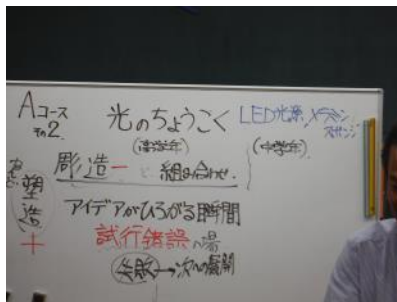 Aコース
その2
光のちょうこく
LED光源,メラミンスポンジ
(高学年)
(中学年)
彫造− 組み合わせ.
塑造+
アイデアがひろがる瞬間
試行錯誤の場
失敗→次への展開